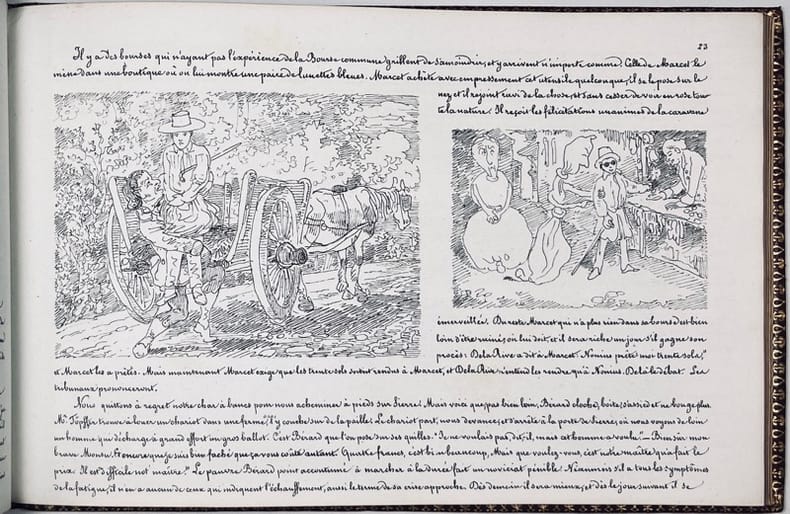 23
Il y a des bourses qui n'ayant pas l'expérience de la Bourse commune grillent de s'amoindrir, et y arrivent n'importe comme. Celle de Marcet le
mine dans une boutique où on lui montre une paire de lunettes bleues. Marcet achète avec empressement cet utensile quelconque, il se le pose sur le
nez, et il rejoint ravi de la chose, et sans cesser de voir en rose tou
te la nature. Il reçoit les félicitations unanimes de la caravane
émerveillée. Du reste Marcet qui n'a plus rien dans sa bourse est bien
loin d'être ruiné; on lui doit, et il sera riche un jour s'il gagne son
procès: De la Rive a dit à Marcet: Nonius prête moi trente sols,
et Marcet les a prêtés. Mais maintenant Marcet exige que les trente sols soient rendus à Marcet, et De la Rive n'entend les rendre qu'à Nonius. De là le débat. Les
tribunaux prononceront.
Nous quittons à regret notre char à bancs pour nous acheminer à pieds sur Sierre. Mais voici que, pas bien loin, Bérard cloche, boite, s'assied et ne bouge plus.
Mr. Töpffer trouve à louer un chariot dans une ferme, l'y couche sur de la paille. Le chariot part, nous devance, et s'arrête à la porte de Sierre, où nous voyons de loin
un homme qui décharge à grand effort un gros ballot. C'est Bérard que l'on pose sur ses quilles. "Je ne voulais pas, dit, il, mais cet homme a voulu." — Bien sûr mon
brave Monsu. Fromors que je suis bien faché que ça vous coûte autant. Quatre francs, c'est bien beaucoup, Mais que voulez-vous, c'est notre maître qui a fait le
prix. Il est difficile not maître." Le pauvre Bérard point accoutumé à marcher à la durée fait un noviciat pénible. Néanmoins s'il a tous les symptômes
de la fatigue, il n'en a aucun de ceux qui indiquent l'échauffement, aussi le terme de sa crise approche. Dès demain il sera mieux, et dès le jour suivant il se